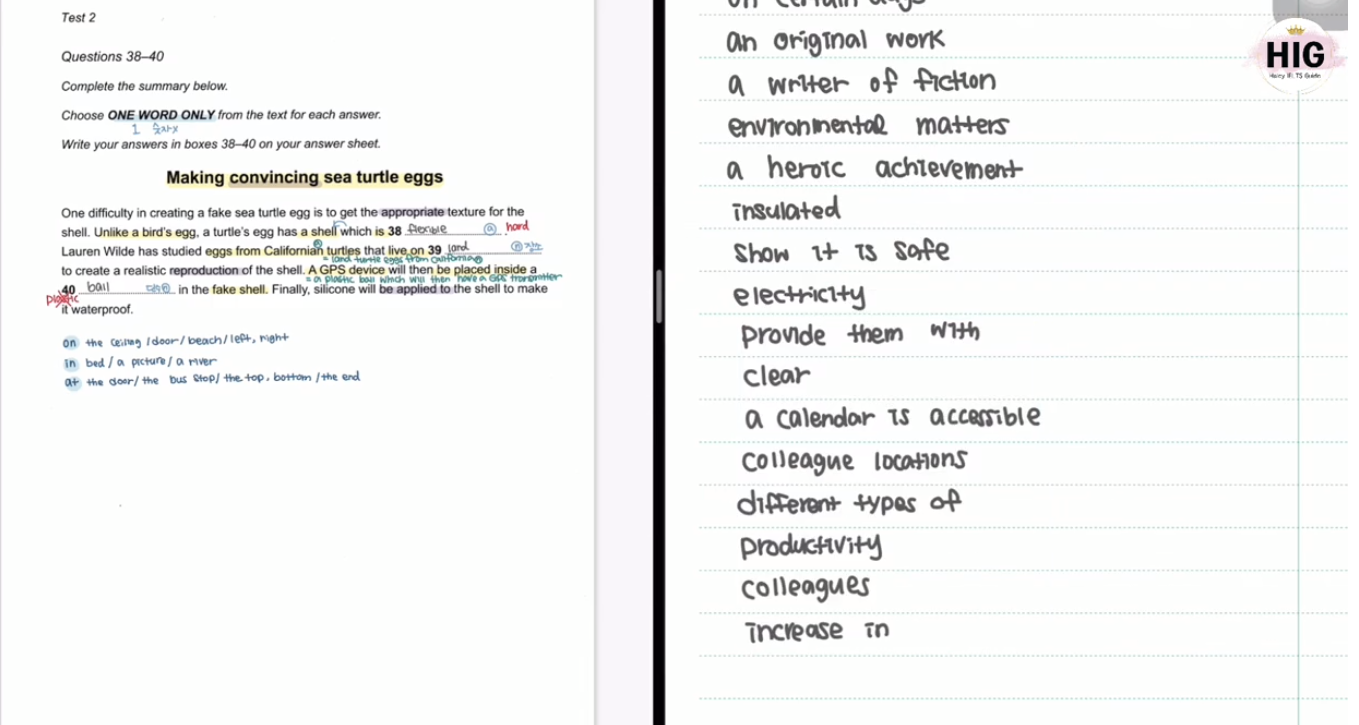 Test 2
Questions 38–40
Complete the summary below.
Choose ONE WORD ONLY from the text for each answer.
1 숫자X
Write your answers in boxes 38–40 on your answer sheet.
Making convincing sea turtle eggs
One difficulty in creating a fake sea turtle egg is to get the appropriate texture for the
shell. Unlike a bird's egg, a turtle's egg has a shell which is 38 flexible ⓐ . hard
Lauren Wilde has studied eggs from Californian turtles that live on 39 land ⓝ 장소
= land turtle eggs from California
to create a realistic reproduction of the shell. A GPS device will then be placed inside a
= a plastic ball which will then have a GPS transmitter
40 ball in the fake shell. Finally, silicone will be applied to the shell to make
plastic
it waterproof.
on the ceiling / door / beach / left, right
in bed / a picture / a river
at the door / the bus stop / the top, bottom / the end
an original work
a writer of fiction
environmental matters
a heroic achievement
insulated
show it is safe
electricity
provide them with
clear
a calendar is accessible
colleague locations
different types of
productivity
colleagues
increase in
HIG